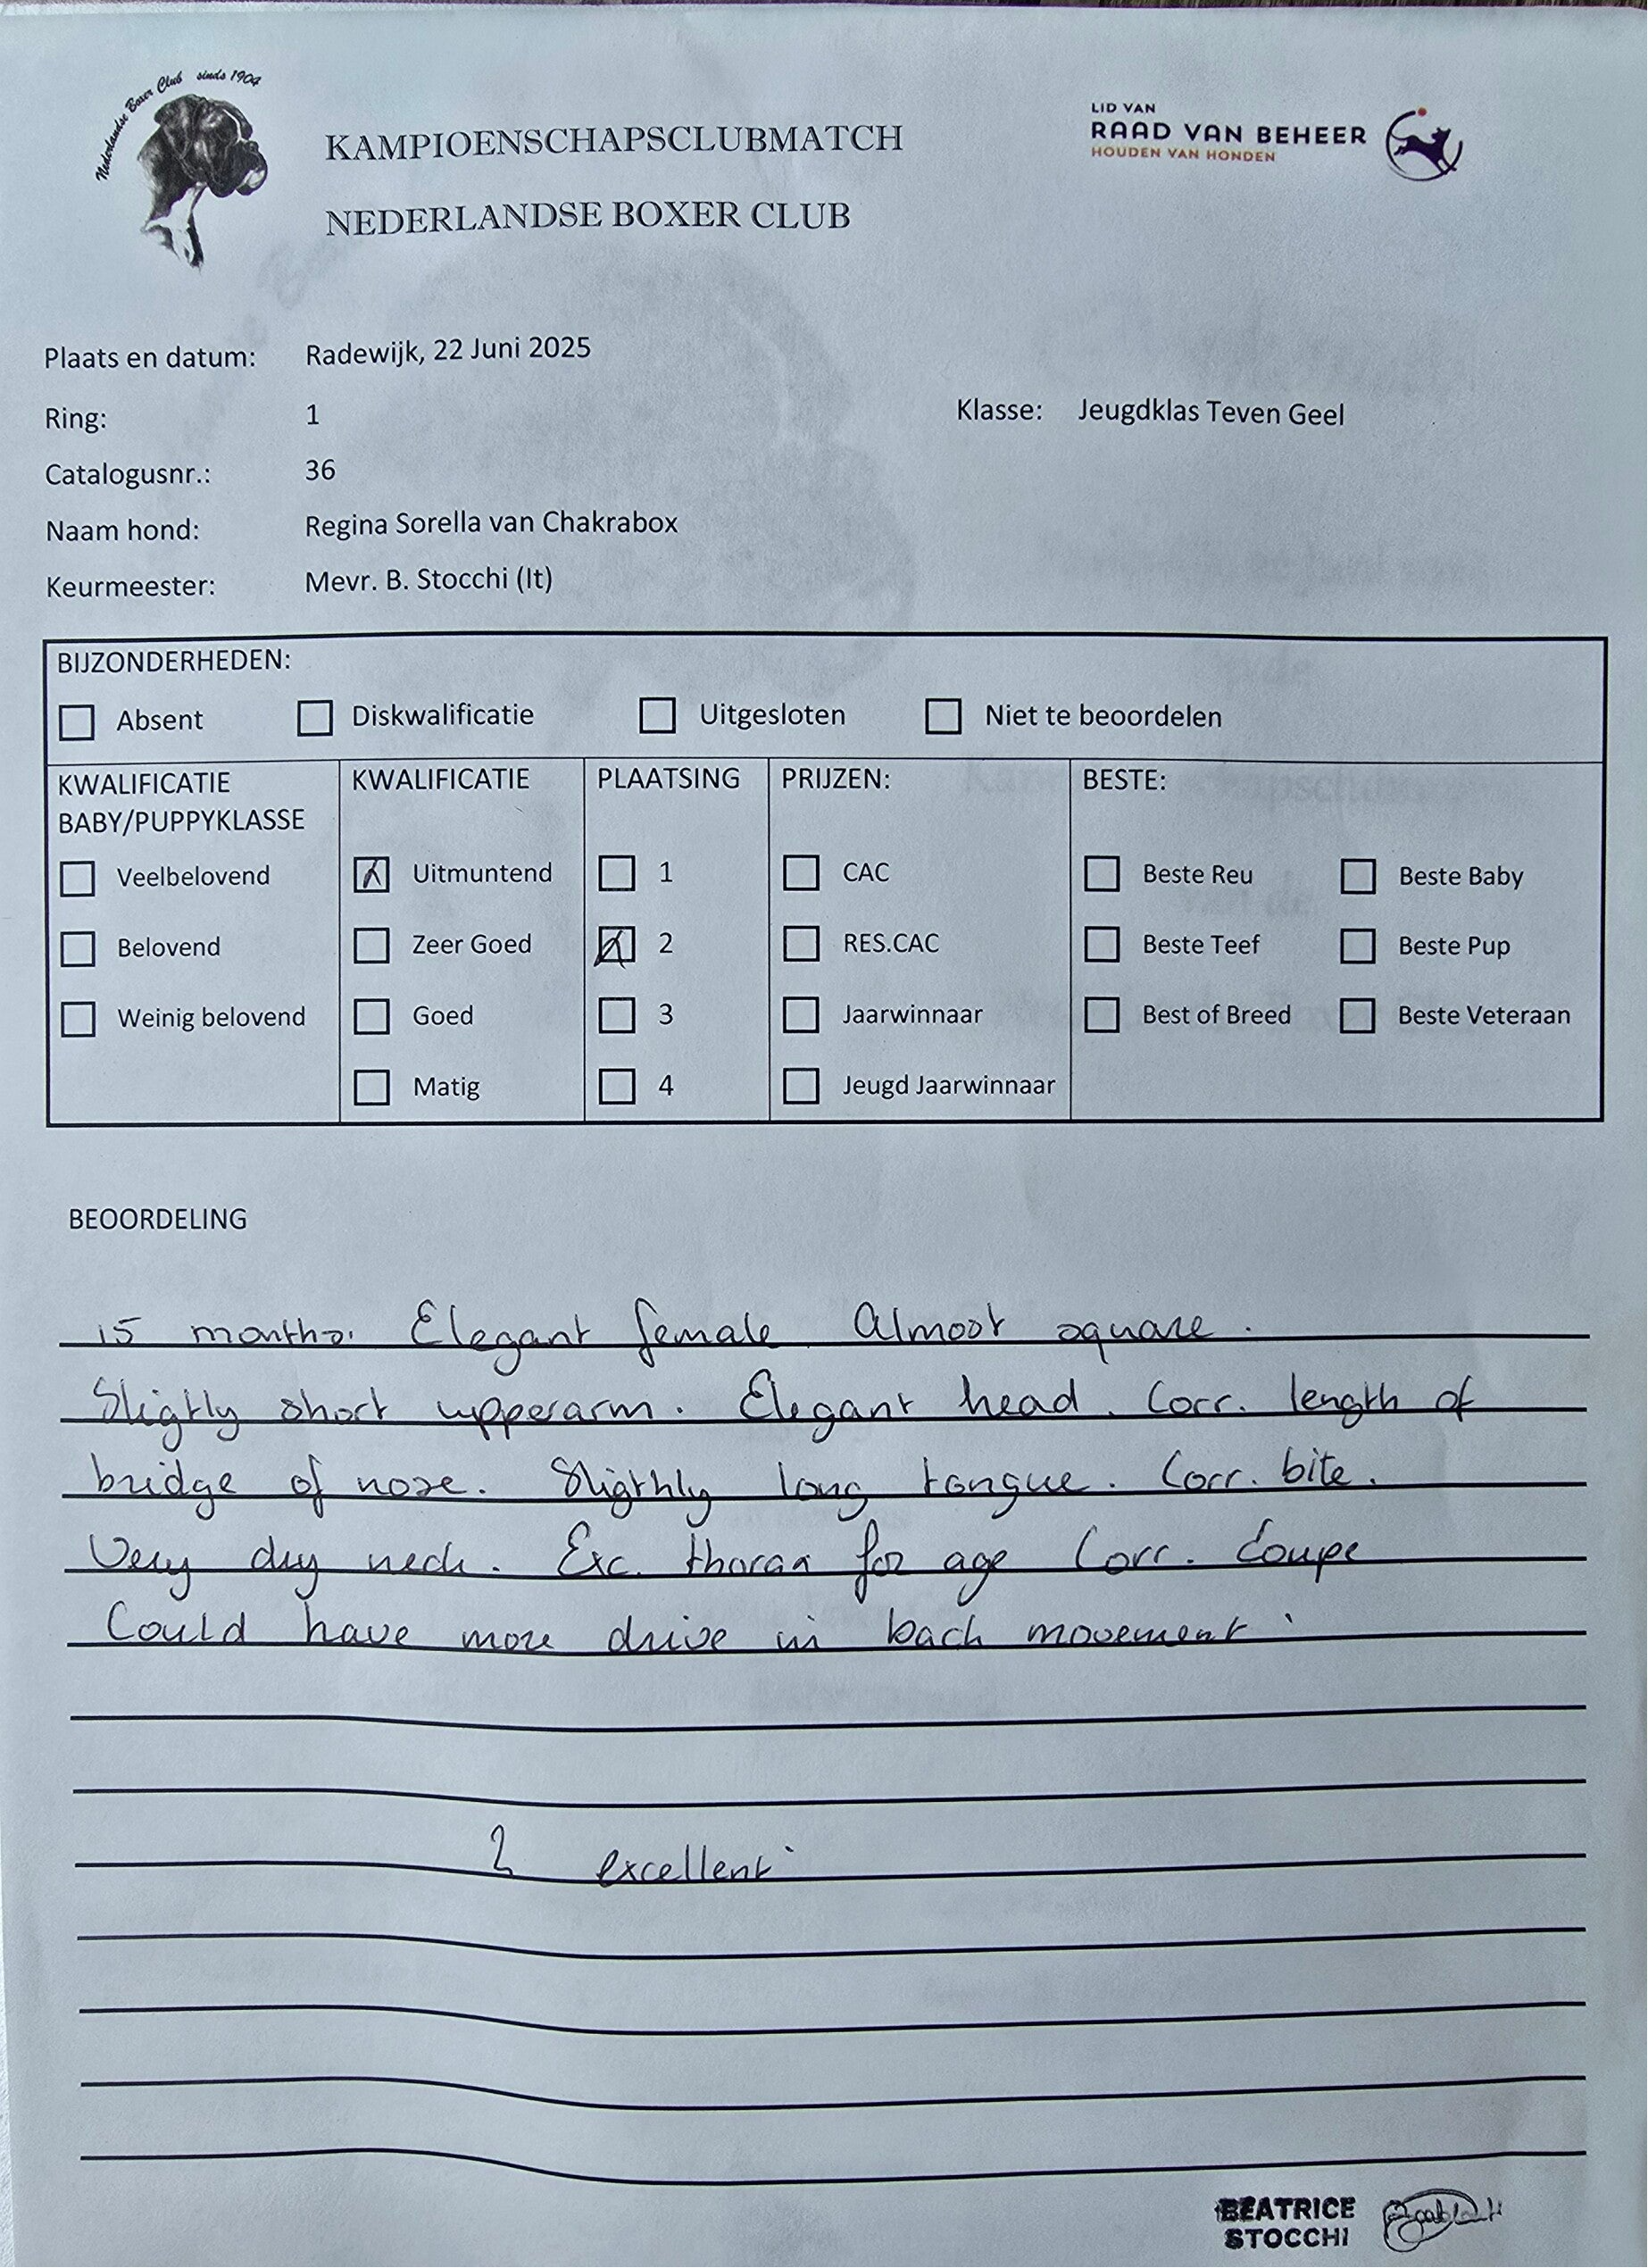 Nederlandse Boxer Club sinds 1904
KAMPIOENSCHAPSCLUBMATCH
NEDERLANDSE BOXER CLUB
LID VAN
RAAD VAN BEHEER
HOUDEN VAN HONDEN
Plaats en datum: Radewijk, 22 Juni 2025
Ring: 1 Klasse: Jeugdklas Teven Geel
Catalogusnr.: 36
Naam hond: Regina Sorella van Chakrabox
Keurmeester: Mevr. B. Stocchi (It)
BIJZONDERHEDEN:
Absent Diskwalificatie Uitgesloten Niet te beoordelen
KWALIFICATIE
BABY/PUPPYKLASSE
Veelbelovend
Belovend
Weinig belovend
KWALIFICATIE
Uitmuntend
Zeer Goed
Goed
Matig
PLAATSING
1
2
3
4
PRIJZEN:
CAC
RES.CAC
Jaarwinnaar
Jeugd Jaarwinnaar
BESTE:
Beste Reu Beste Baby
Beste Teef Beste Pup
Best of Breed Beste Veteraan
BEOORDELING
15 months. Elegant female Almost square.
Sligtly short upperarm. Elegant head. Corr. length of
bridge of nose. Sligthly long tongue. Corr. bite.
Very dry neck. Exc. thorax for age Corr. Coupe
Could have more drive in back movement.
2 excellent
BEATRICE
STOCCHI